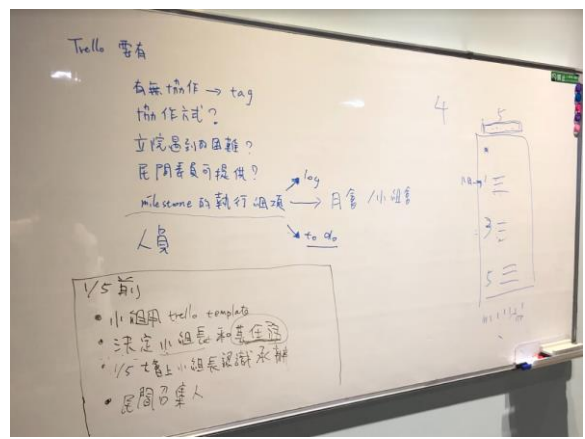 Trello 要有
有無協作 → tag
協作方式?
立院遇到的困難?
民間委員可提供?
milestone 的執行細項 → 月會 / 小組會
log
to do
人員
1/5 前
• 小組用 trello template
• 決定小組長和
• 1/5 大會上小組長認識承辦
• 民間召集人
4
5
3
5